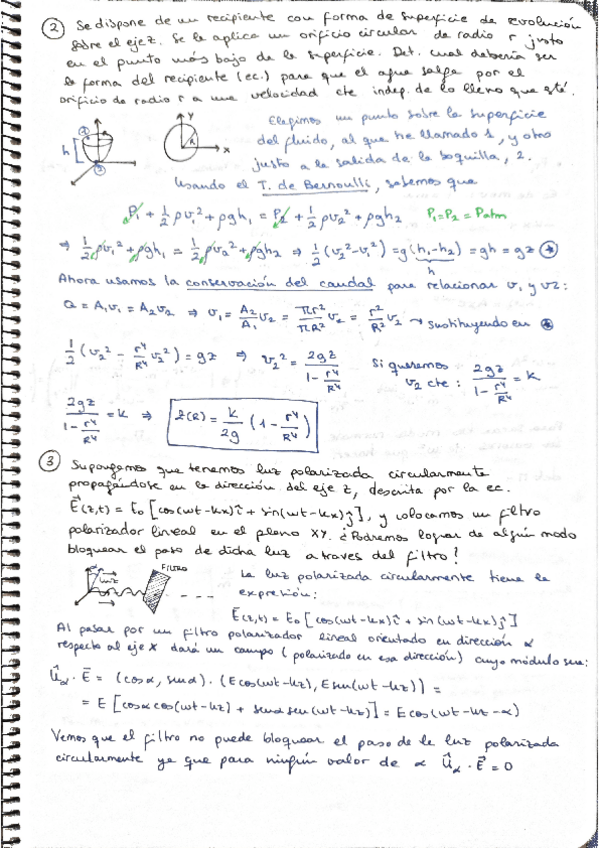 ② Se dispone de un recipiente con forma de superficie de evolución
sobre el eje z. Se le aplica un orificio circular de radio r justo
en el punto más bajo de la superficie. Det. cual debería ser
la forma del recipiente (ec.) para que el agua salga por el
orificio de radio r a una velocidad cte indep. de lo lleno que esté.
Elegimos un punto sobre la superficie
del fluido, al que he llamado 1, y otro
justo a la salida de la boquilla, 2.
Usando el T. de Bernoulli, sabemos que
h
①
②
Y
R
x
P₁ + 1/2 ρv₁² + ρgh₁ = P₂ + 1/2 ρv₂² + ρgh₂ P₁=P₂ = Patm
⇒ 1/2 ρv₁² + ρgh₁ = 1/2 ρv₂² + ρgh₂ ⇒ 1/2 (v₂²-v₁²) = g(h₁-h₂) = gh = gz ⊛
h
Ahora usamos la conservación del caudal para relacionar v₁ y v2:
Q = A₁v₁ = A₂v₂ ⇒ v₁ = A₂/A₁ v₂ = πr²/πR² v₂ = r²/R² v₂ → sustituyendo en ⊛
1/2 (v₂² - r⁴/R⁴ v₂²) = gz ⇒ v₂² = 2gz/(1 - r⁴/R⁴) Si queremos v₂ cte : 2gz/(1 - r⁴/R⁴) = k
2gz/(1 - r⁴/R⁴) = k ⇒ z(R) = k/2g (1 - r⁴/R⁴)
③ Supongamos que tenemos luz polarizada circularmente
propagándose en la dirección del eje z, descrita por la ec.
E⃗(z,t) = E₀ [cos(ωt-kx)î + sin(ωt-kx)ĵ], y colocamos un filtro
polarizador lineal en el plano XY. ¿Podremos lograr de algún modo
bloquear el paso de dicha luz a traves del filtro?
α
luz
FILTRO
La luz polarizada circularmente tiene la
expresión:
E(z,t) = E₀ [cos(ωt-kx)î + sin(ωt-kx)ĵ]
Al pasar por un filtro polarizador lineal orientado en dirección α
respecto al eje X dará un campo (polarizado en esa dirección) cuyo módulo sera:
û_α · E⃗ = (cosα, senα) · (E cos(ωt-kz), E sen(ωt-kz)) =
= E [cosα cos(ωt-kz) + senα sen(ωt-kz)] = E cos(ωt-kz-α)
Vemos que el filtro no puede bloquear el paso de la luz polarizada
circularmente ya que para ningún valor de α û_α · E⃗ = 0